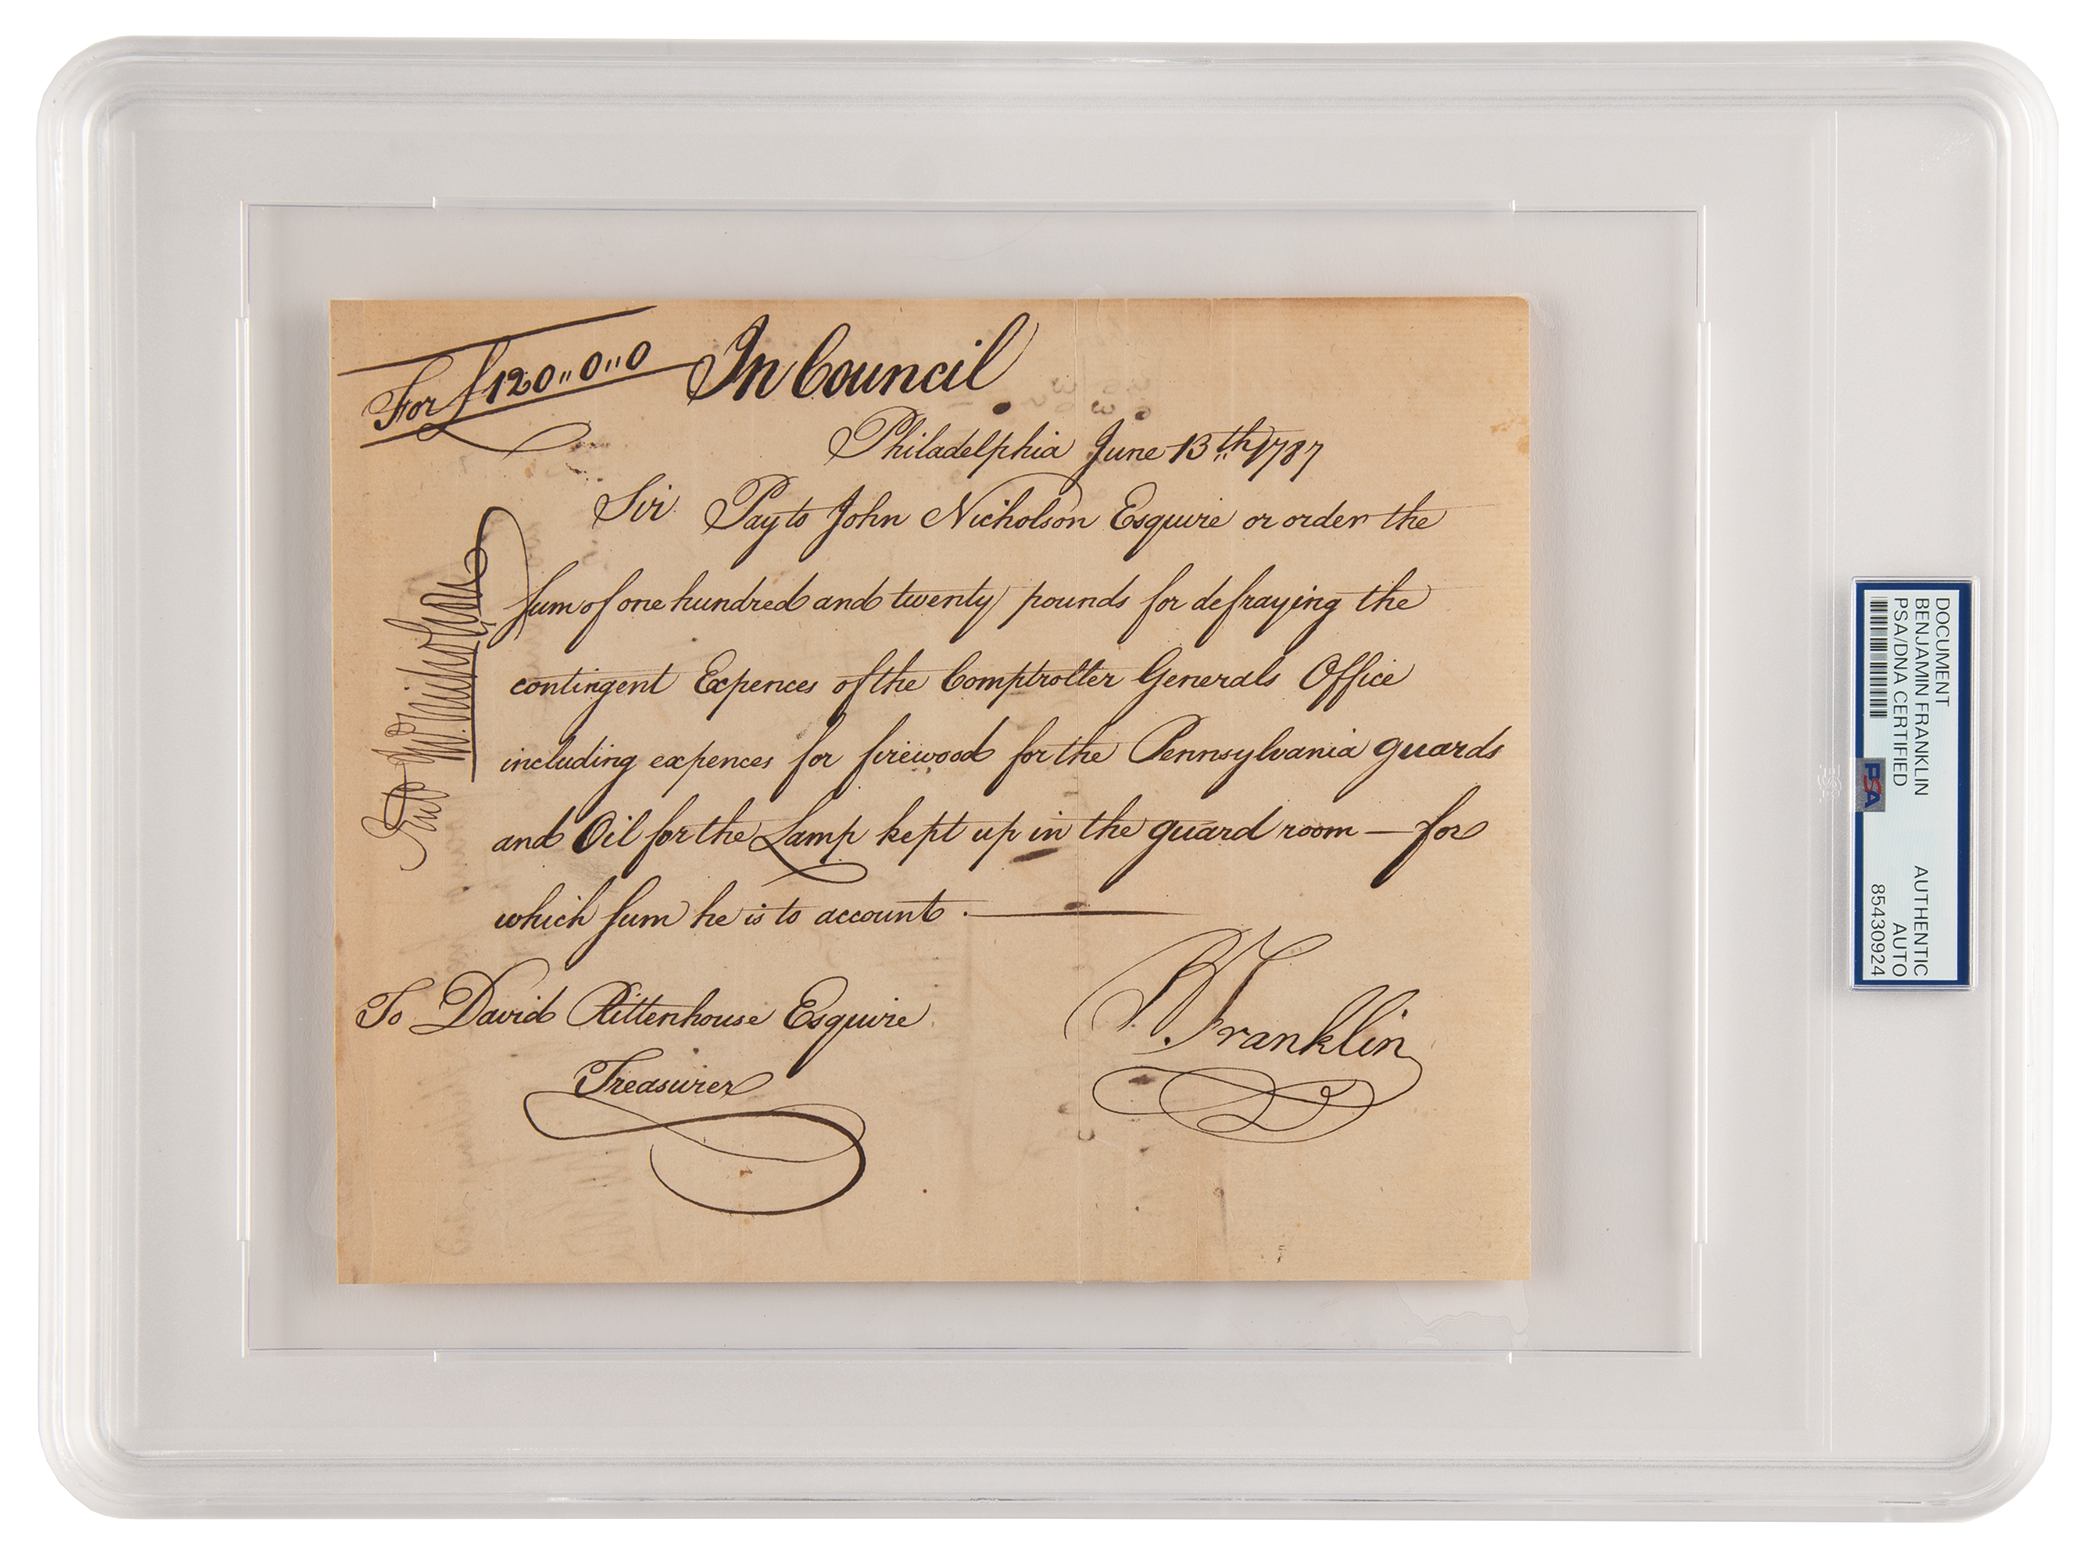 For £120,,0,,0
In Council
Philadelphia June 13th 1787
Sir Pay to John Nicholson Esquire or order the
sum of one hundred and twenty pounds for defraying the
contingent Expences of the Comptroller Generals Office
including expences for firewood for the Pennsylvania guards
and Oil for the Lamp kept up in the guard room — for
which sum he is to account. —
To David Rittenhouse Esquire
Treasurer
B. Franklin
Jno Nicholson
DOCUMENT
BENJAMIN FRANKLIN AUTHENTIC
PSA/DNA CERTIFIED AUTO
85430924
PSA